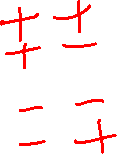 + +
+ -
- -
- +